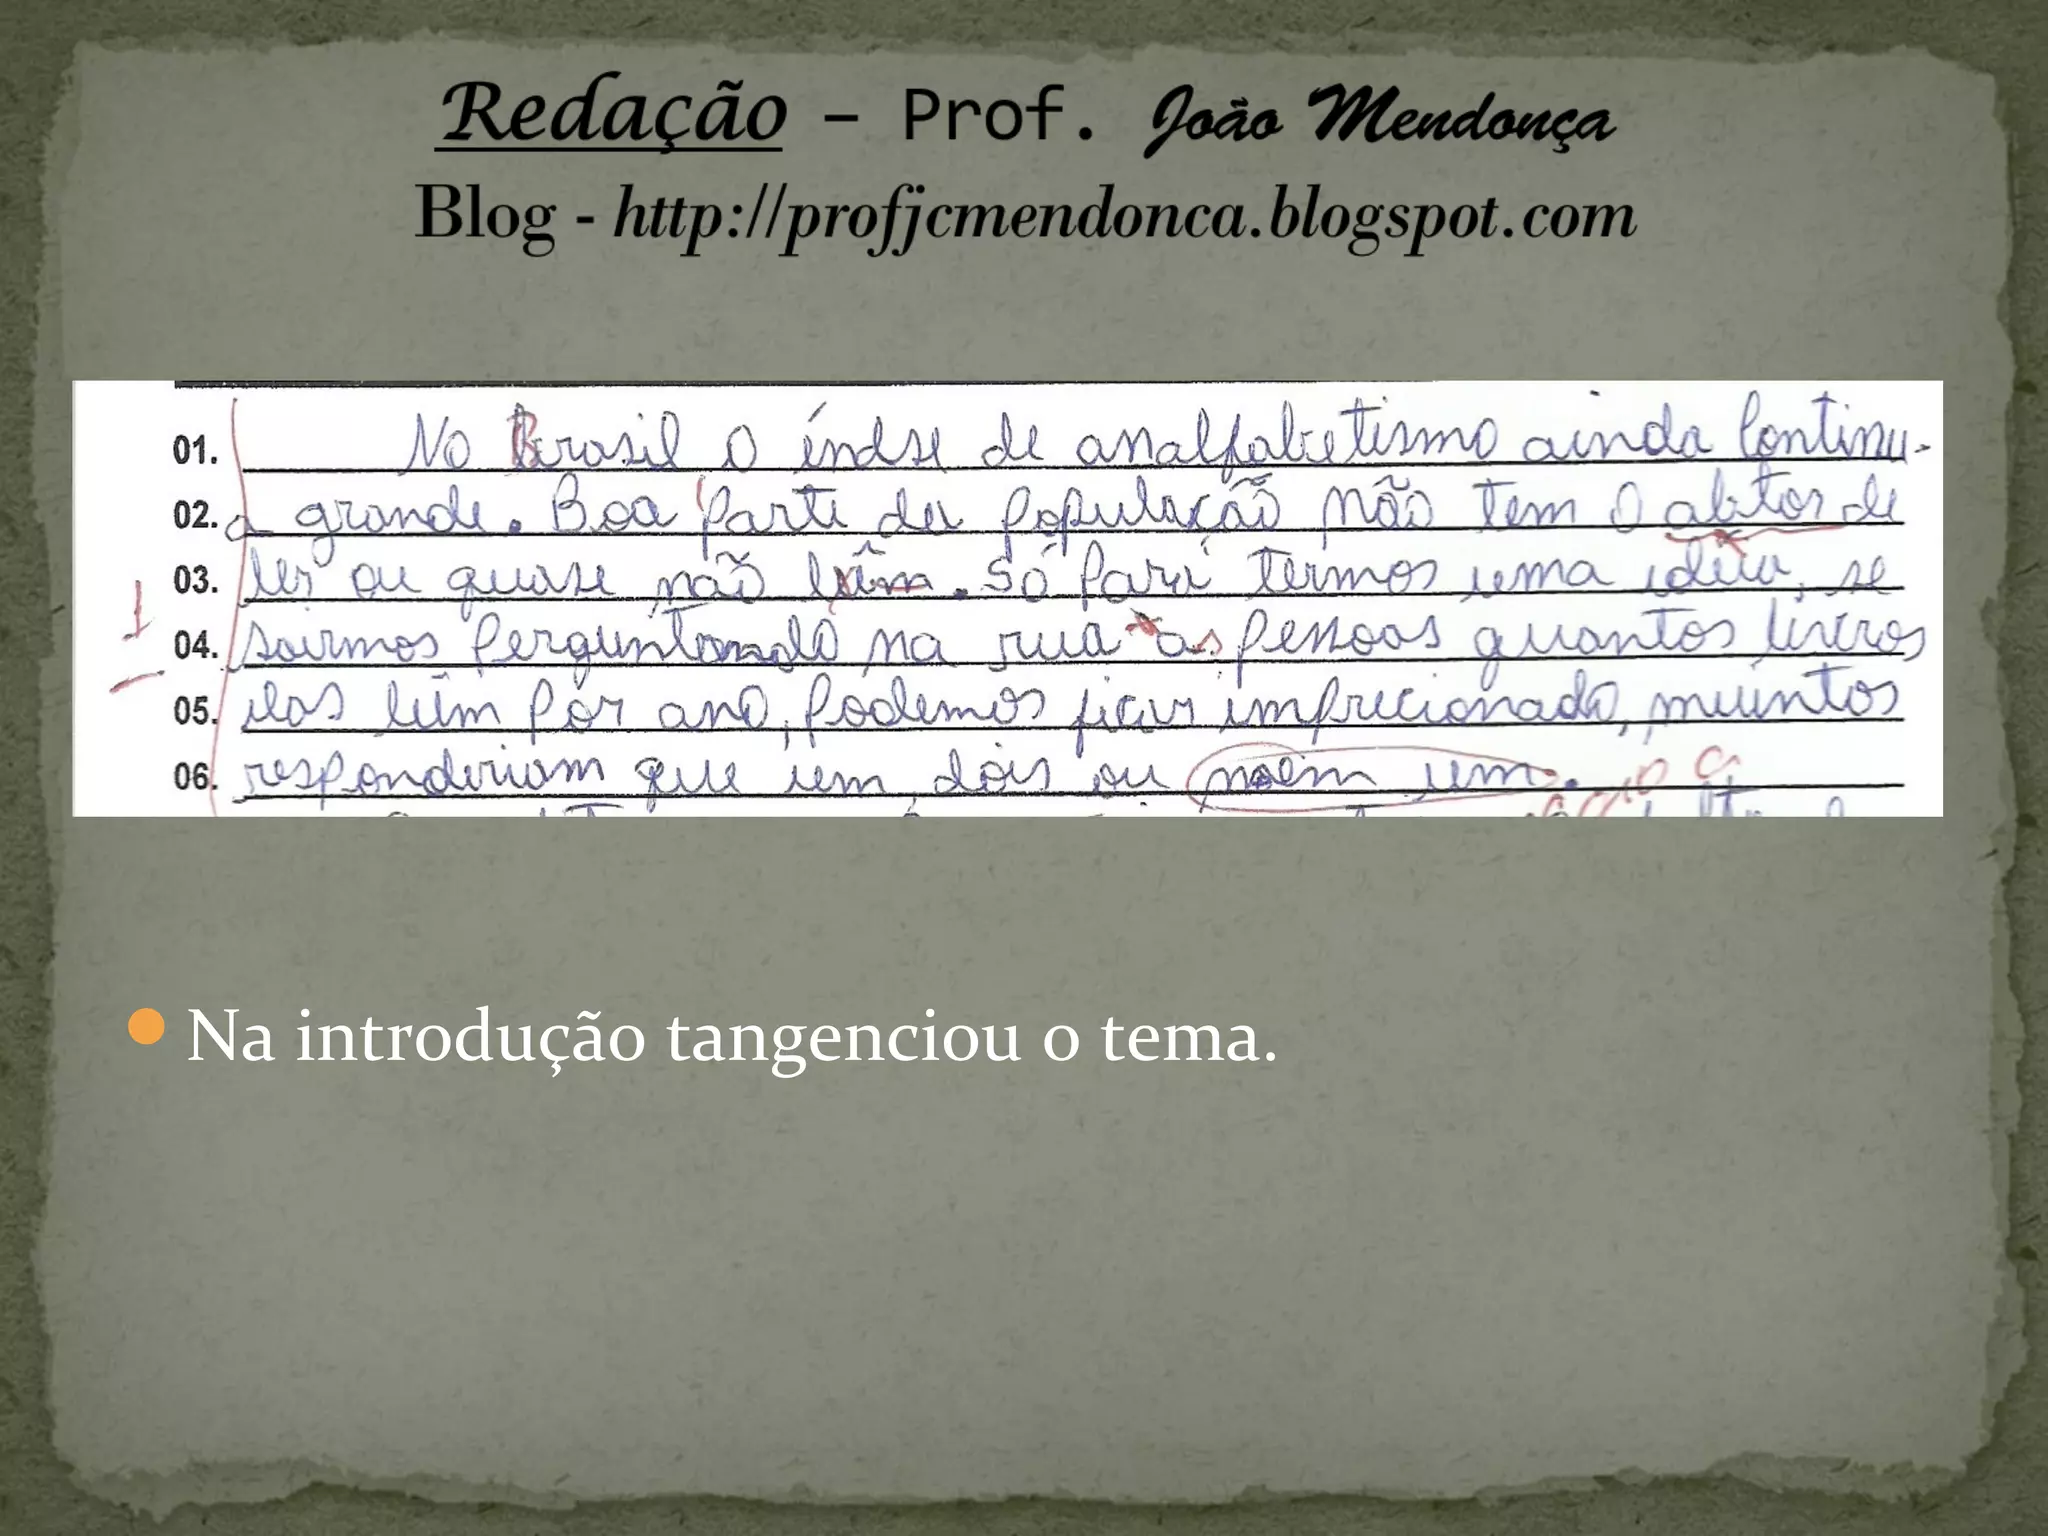 Redação – Prof. João Mendonça
Blog - http://profjcmendonca.blogspot.com
01. No Brasil o índse de analfabetismo ainda continu-
02. a grande. Boa parte da população não tem o abitos de
03. ler ou quase não lêm. Só para termos uma ideia, se
04. sairmos perguntando na rua as pessoas quantos livros
05. elas lêm por ano, podemos ficar imprecionado, muintos
06. responderiam que um, dois ou noem um.
Na introdução tangenciou o tema.